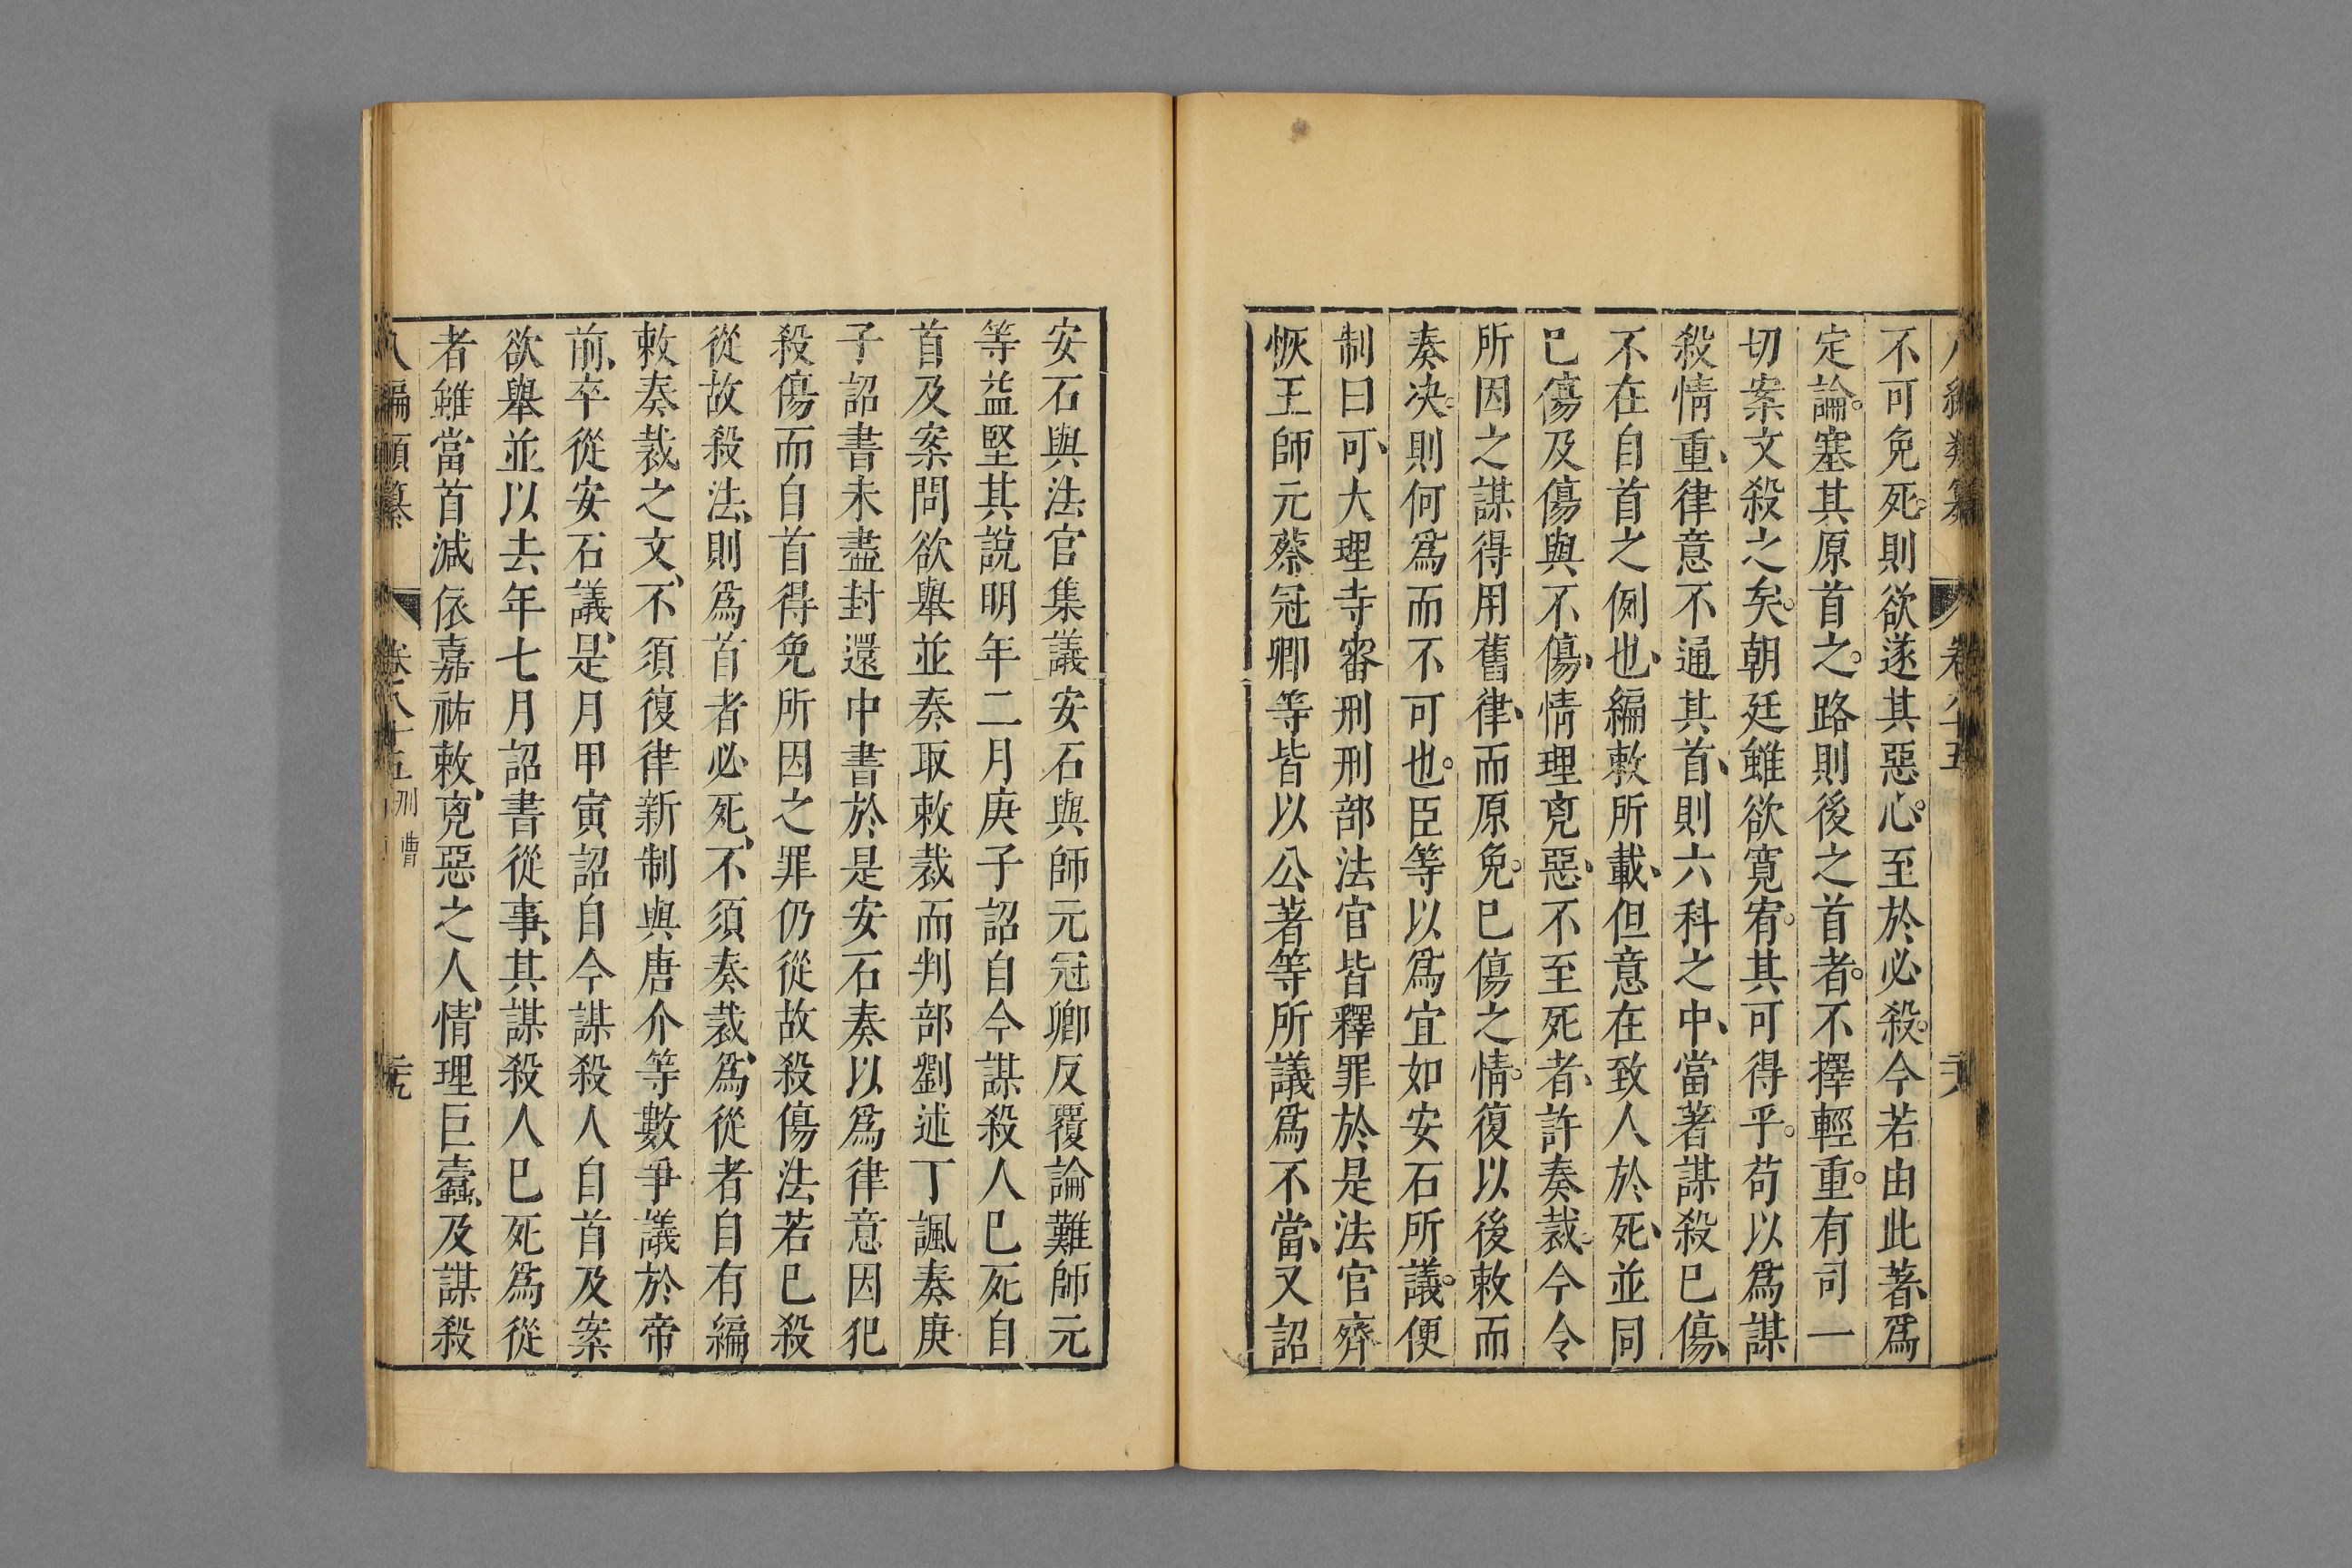 不可免死則欲遂其惡心至於必殺今若由此著爲
定論塞其原首之路則後之首者不擇輕重有司一
切案文殺之矣朝廷雖欲寛宥其可得乎苟以爲謀
殺情重律意不通其首則六科之中當著謀殺已傷
不在自首之例也編敕所載但意在致人於死並同
已傷及傷與不傷情理兇惡不至死者許奏裁今令
所因之謀得用舊律而原免已傷之情復以後敕而
奏决則何爲而不可也臣等以爲宜如安石所議便
制曰可大理寺審刑刑部法官皆釋罪於是法官齊
恢王師元蔡冠卿等皆以公著等所議爲不當又詔
安石與法官集議安石與師元冠卿反覆論難師元
等益堅其說明年二月庚子詔自今謀殺人已死自
首及案問欲舉並奏取敕裁而判部劉述丁諷奏庚
子詔書未盡封還中書於是安石奏以爲律意因犯
殺傷而自首得免所因之罪仍從故殺傷法若已殺
從故殺法則爲首者必死不須奏裁爲從者自有編
敕奏裁之文不須復律新制與唐介等數爭議於帝
前卒從安石議是月甲寅詔自今謀殺人自首及案
欲舉並以去年七月詔書從事其謀殺人已死爲從
者雖當首減依嘉祐敕兇惡之人情理巨蠧及謀殺
八編類纂 卷八十五 刑曹 二十九